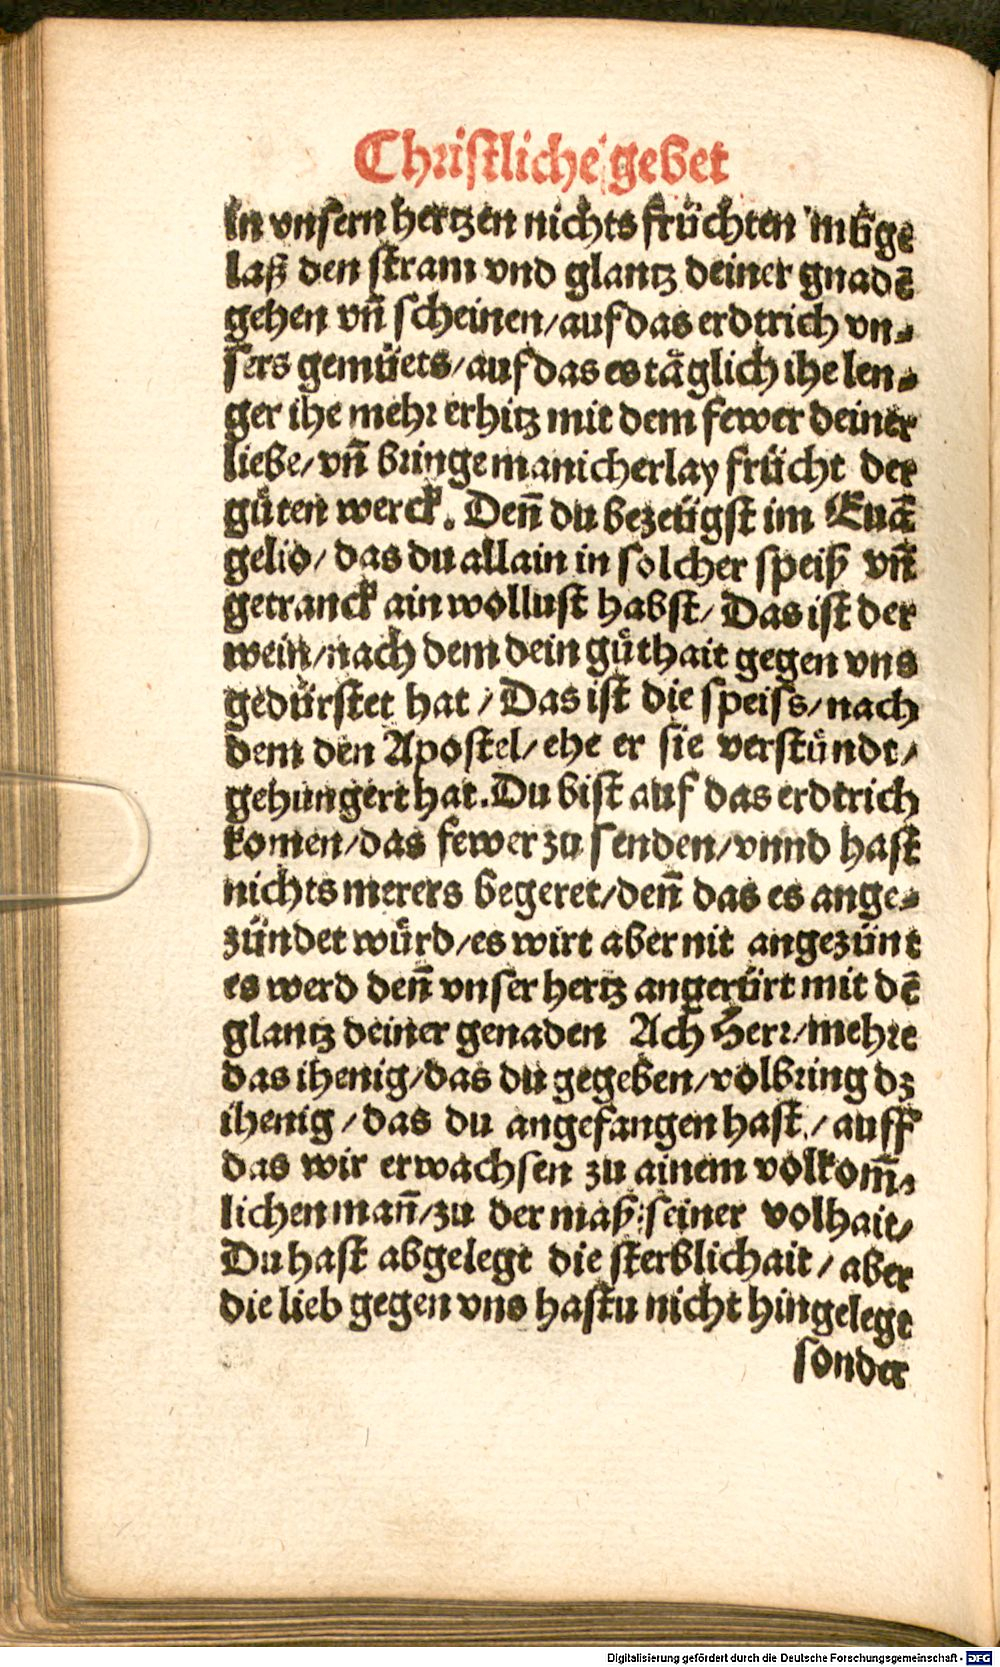 Christliche gebet
in vnsern hertzen nichts früchten müge
laß den stram vnd glantz deiner gnadē
gehen vn̄ scheinen/auf das erdtrich vn-
sers gemüets/auf das es täglich ihe len-
ger ihe mehr erhitz mit dem fewer deiner
liebe/vn̄ bringe manicherlay frücht der
gůten werck. Den̄ du bezeügst im Euā
gelio/das du allain in solcher speiß vn̄
getranck ain wollust habst/Das ist der
wein/nach dem dein gůthait gegen vns
gedürstet hat/Das ist die speiss/nach
dem den Apostel/ehe er sie verstünde/
gehungert hat.Du bist auf das erdtrich
komen/das fewer zu senden/vnnd hast
nichts merers begeret/den̄ das es ange-
zündet würd/es wirt aber nit angezünt
es werd den̄ vnser hertz angerürt mit dē
glantz deiner genaden Ach Herr/mehre
das ihenig/das du gegeben/volbring dz
ihenig/das du angefangen hast/auff
das wir erwachsen zu ainem volkom̄-
lichen man̄/zu der maß seiner volhait/
Du hast abgelegt die sterblichait/aber
die lieb gegen vns hastu nicht hingelegt
sonder
Digitalisierung gefördert durch die Deutsche Forschungsgemeinschaft - DFG